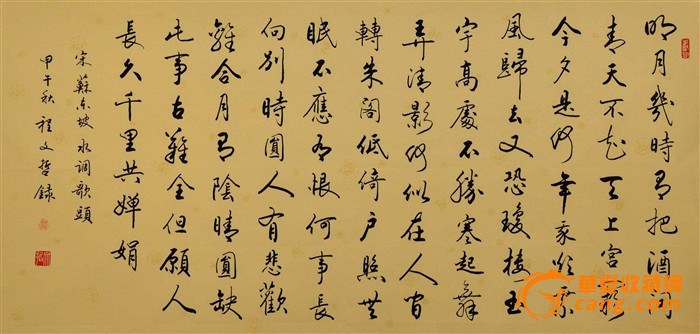 明月幾時有把酒問
青天不知天上宮闕
今夕是何年我欲乘
風歸去又恐瓊樓玉
宇高處不勝寒起舞
弄清影何似在人間
轉朱閣低倚户照無
眠不應有恨何事長
向別時圓人有悲歡
離合月有陰晴圓缺
此事古難全但願人
長久千里共嬋娟
宋蘇东坡水调歌頭
甲午秋程文哲錄
华夏收藏网
cang.com